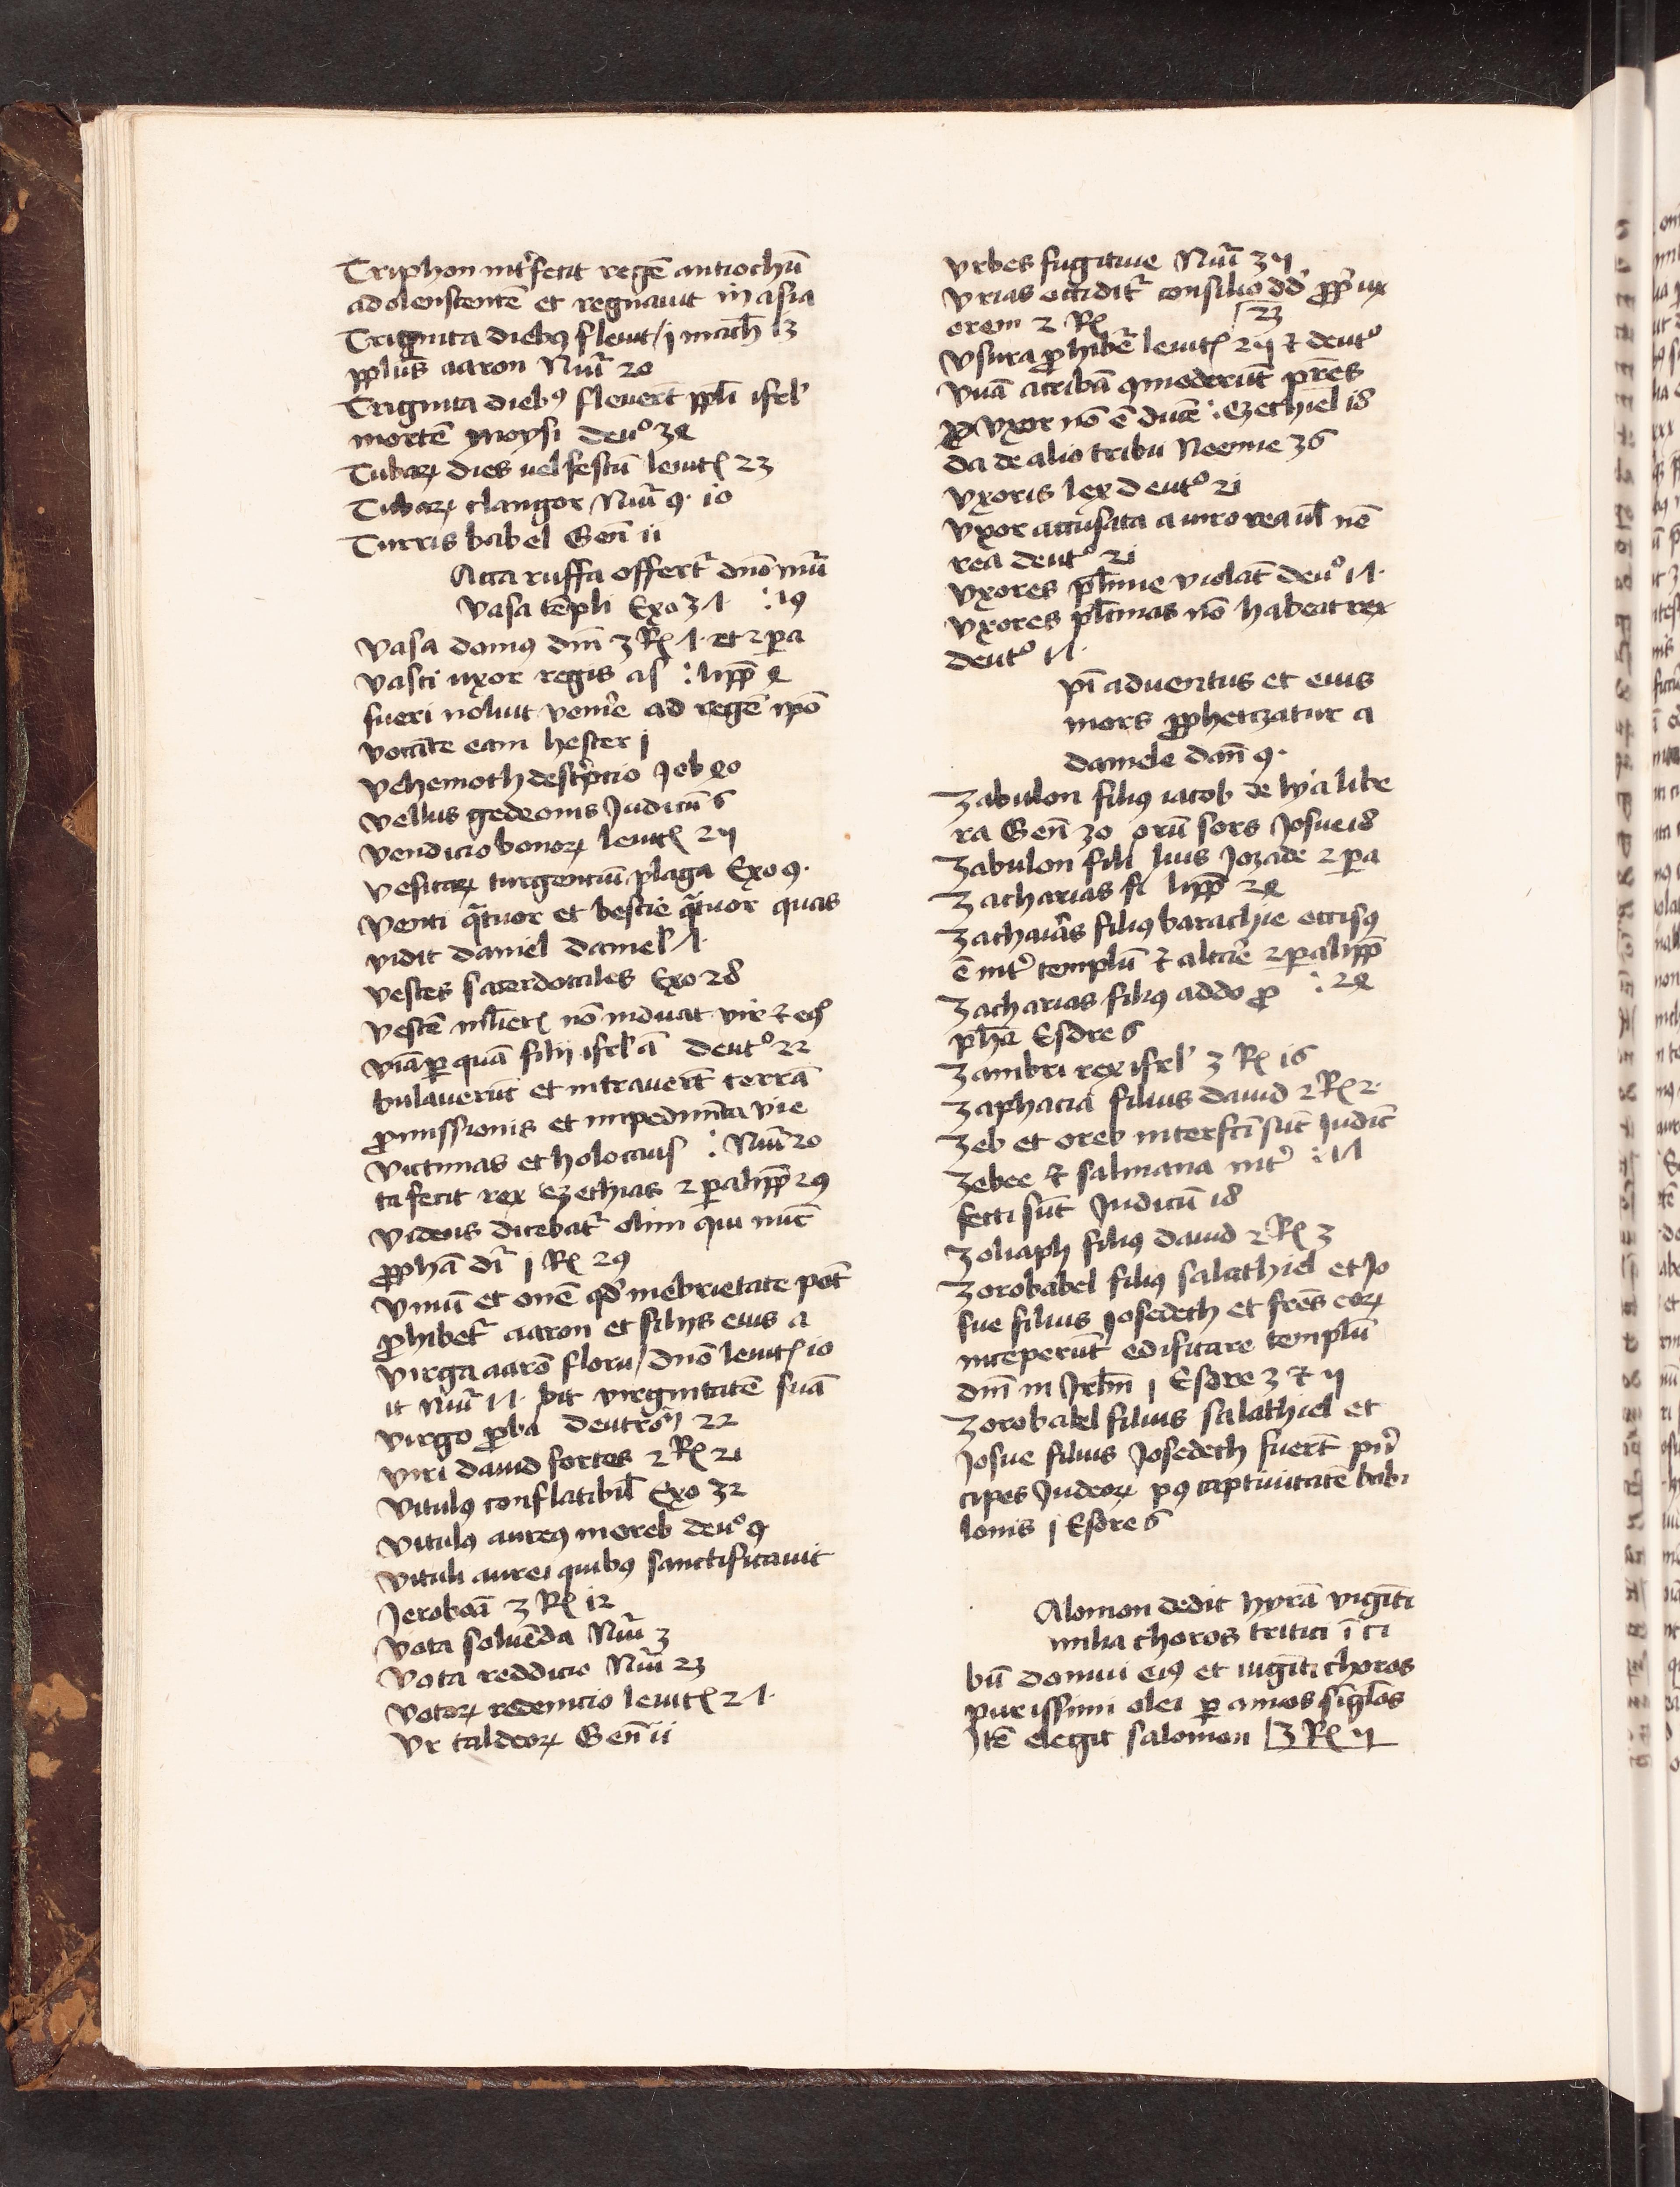 Triphon int͛fecit regē antiochū
adolenscentē et regnauit in asia
Triginta dieb9 fleuit / j mach̄ 13
pplūs aaron Nūi 20
Triginta dieb9 fleuer̄t ppl̄i isrl'
mortē moysi deuͦ 3ꝝ4
Tubaꝝ dies uel festū leuit͛ 23
Tubaꝝ clangor Nūi 9· 10
Turris babel Gen̄ 11
Acca ruffa offert͛ dn̄o nūi
vasa tēpli Exo 37 :19
vasa dom9 dn̄i 3 R͛ 7· et 2 pa
vasti uxor regis as :lipp̄ 4
sueri noluit ven͛e ad regē ip̄o
vocāte eam hester j
vehemoth descͥptio Job 40
vellus gedeonis Judicū 6
vendicio bonoꝝ leuit͛ 25
vesicaꝝ turgentiū plaga Exo 9·
venti q̄tuor et bestie q̄tuor quas
vidit daniel daniel' 7·
vestes sacerdotales Exo 28
vestē ml̄ier͛ nō induat vir ⁊ eͦ9
viā ꝑ quā filij isrl' ā deutͦ 22
bulauerūt et intrauer̄t terrā
ꝓmissionis et impedimīta vie
victimas et holocaus :Nūi 20
ta fecit rex ezechias 2 palipp̄ 29
videns dicebat͛ olim qui nūc
ꝓphā dr̄ j R͛ 29
vinū et om̄e qd̓ inebrietate pot̄
ꝓhibet͛ aaron et filijs eius a
virga aarō floru / dn̄o leuit͛ 10
it Nūi 17· bit virginitatē suā
virgo ꝓba deutroͦ 22
viri dauid fortes 2 R͛ 21
vitul9 conflatibil̄ Exo 32
vitul9 aure9 in oreb deuͦ 9
vituli aurei quib9 sanctificauit
Jeroboā 3 R͛ 12
vota soluēda Nūi 3
vota reddicio Nūi 23
votoꝝ redemcio leuit͛ 27·
vr caldeoꝝ Gen̄ 11
vrbes fugitiue Nūi 35
vrias occidit͛ consilio dd̓ ꝓp̄ ux
orem 2 R͛ 23
vsura ꝓhibē leuit͛ 25 ⁊ deutͦ
vuā acerbā 9mederūt pr̄es
vxor nō ē ducē :ezechiel 18
da de alio tribu Neemie 36
vxoris lex deutͦ 21
vxor accusata a uiro rea ul̄ nō
rea deutͦ 21
vxores pl̄ime violāt deuͦ 17·
vxores pl̄imas nō habeat rex
deutͦ 17·
pī aduentus et eius
mors ꝓphetizatur a
daniele dan̄ 9·
Zabulon fili9 iacob de lya libe
ra Gen̄ 30 orū sors Josue 18
Zabulon fili lius Jozade 2 pa
Zacharias fi lipp̄ 24
Zachaias filius barachie occis9
ē int͛ templū ⁊ altare 2 palipp̄
Zacharias fili9 addo ꝓ :24
ph̄a Esdre 6
Zambri rex isrl' 3 R͛ 16
Zaphacia filius dauid 2 R͛ 2·
Zeb et oreb interfc̄i sūt Judic̄
Zebee ⁊ salmana int͛ :17
fecti sūt Judicū 18
Zoliaph fili9 dauid 2 R͛ 3
Zorobabel fili9 salathiel et Jo
sue filius Josedech et fr̄es eoꝝ
inceperūt edificare templū
dn̄i in Jrl̄m j Esdre 3 ⁊ 5
Zorobabel filius salathiel et
Josue filius Josedech fuer̄t pn̄
cipes Judeoꝝ p9 captiuitatē babi
lonis j Esdre 6
Alomon dedit hyrā vigīti
milia choros tritici ī ci
bū domui ei9 et uigīti choros
purissimi olei ꝑ annos sīgl̄os
Itē elegit salomon 3 R͛ 5